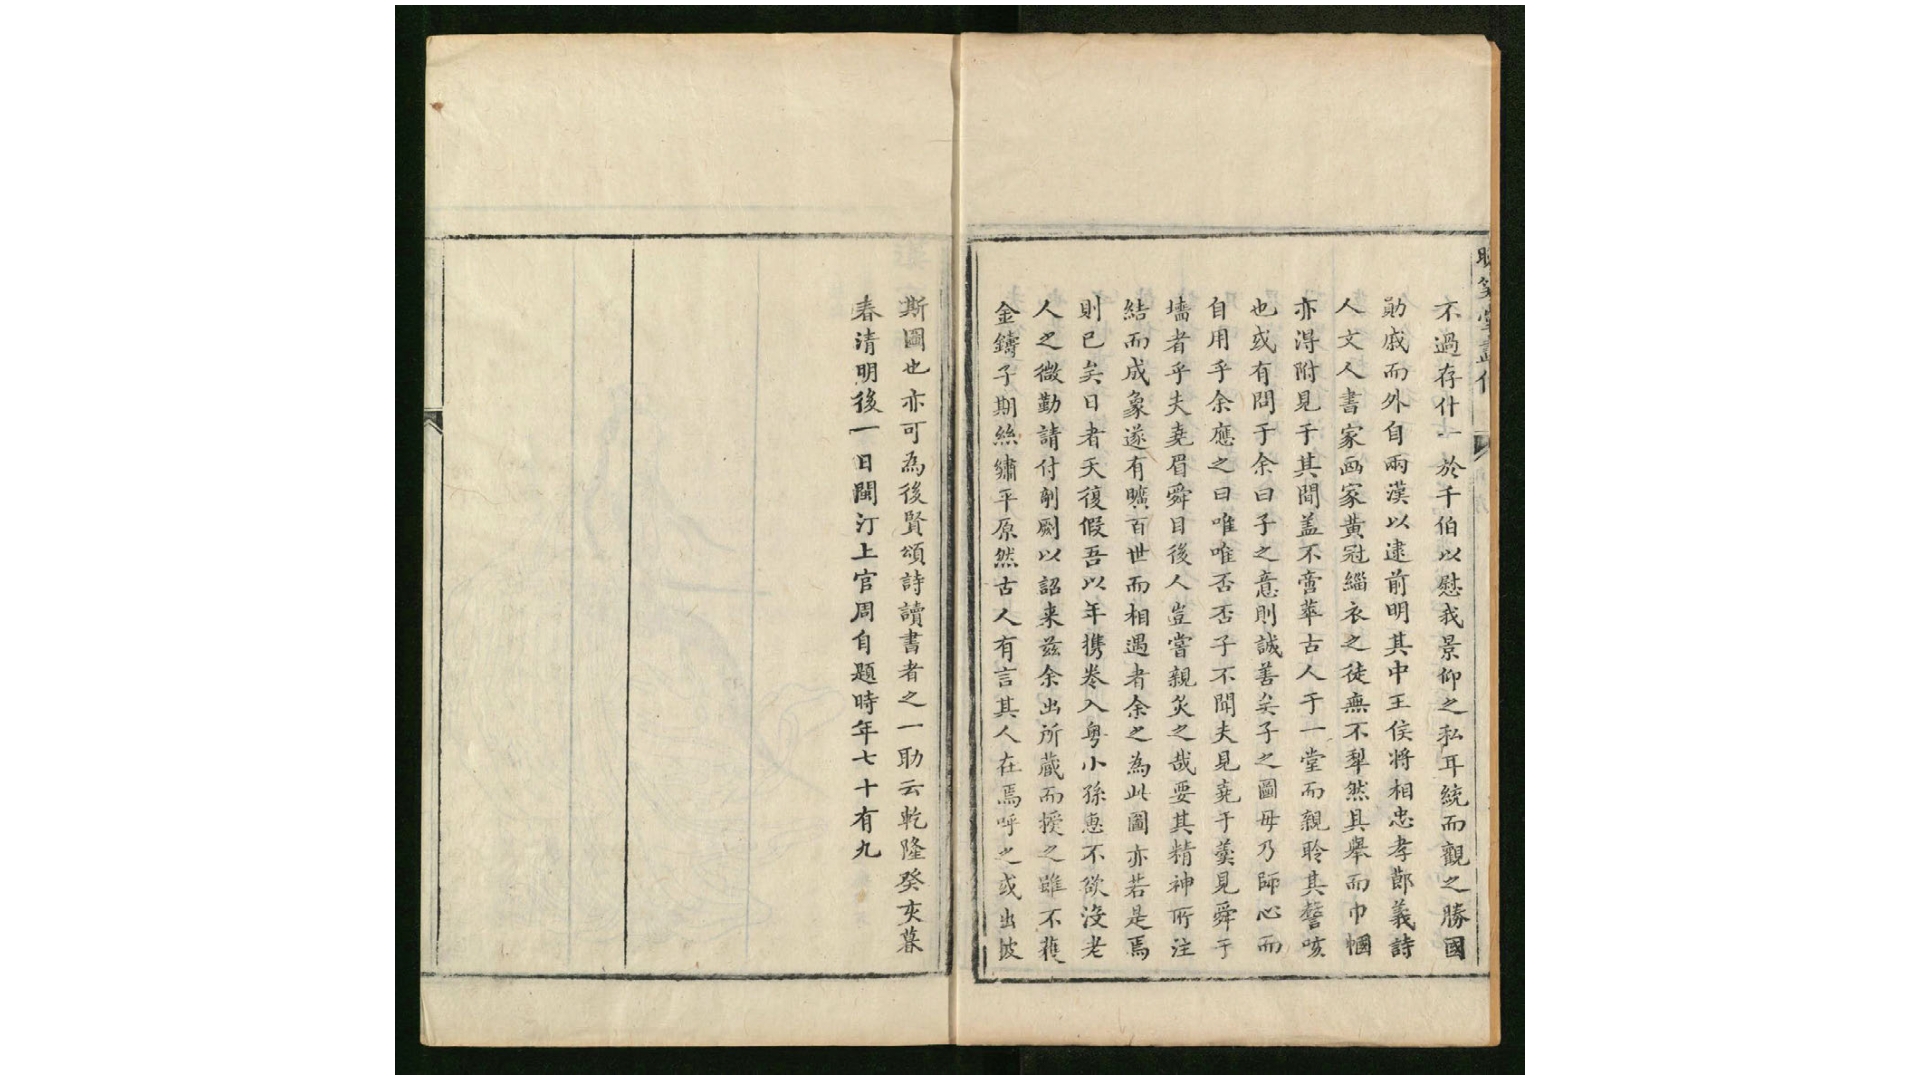 不過存什一於千伯以慰我景仰之私耳統而觀之勝國
勛戚而外自兩漢以逮前明其中王侯將相忠孝節義詩
人文人書家画家黄冠緇衣之徒無不犁然具舉而巾幗
亦得附見于其間盖不啻萃古人于一堂而親聆其謦咳
也或有問于余曰子之意則誠善矣子之圖毋乃師心而
自用乎余應之曰唯唯否否子不聞夫見堯于羹見舜于
墻者乎夫堯眉舜目後人豈嘗親炙之哉要其精神所注
結而成象遂有曠百世而相遇者余之為此圖亦若是焉
則已矣日者天復假吾以年携卷入粤小孫惠不欲没老
人之微勤請付剞劂以詔来兹余出所藏而授之雖不獲
金鑄子期絲繡平原然古人有言其人在焉呼之或出披
斯圖也亦可為後賢頌詩讀書者之一助云乾隆癸亥暮
春清明後一日閩汀上官周自題時年七十有九